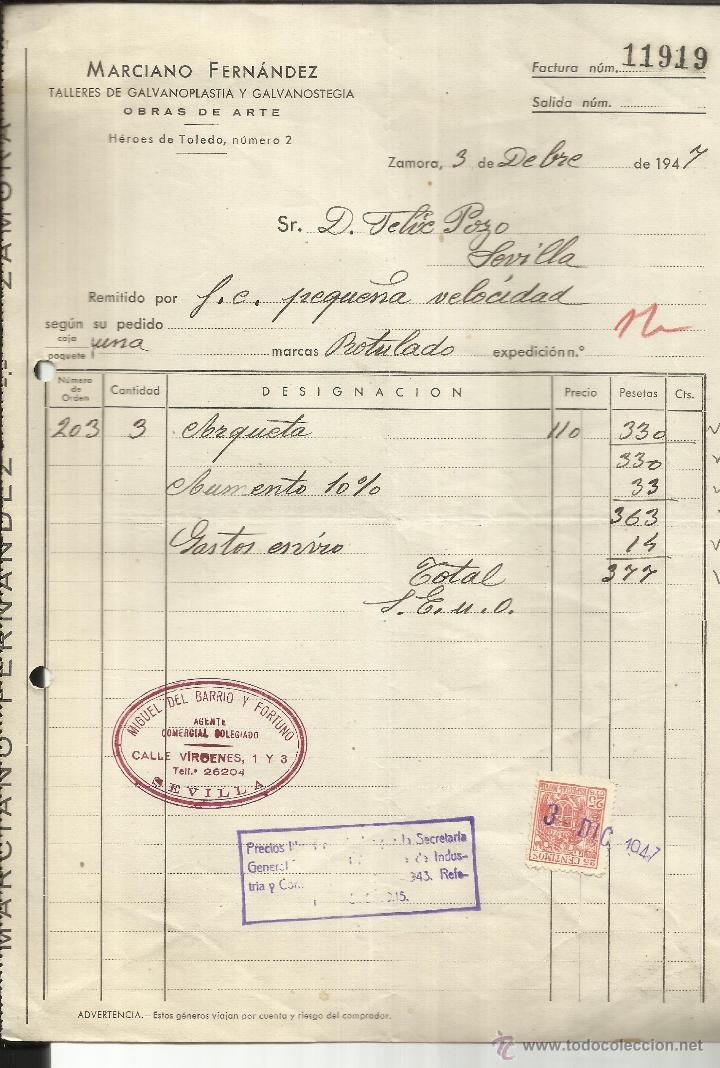 MARCIANO FERNÁNDEZ
TALLERES DE GALVANOPLASTIA Y GALVANOSTEGIA
OBRAS DE ARTE
Héroes de Toledo, número 2
Factura núm. 11919
Salida núm.
Zamora, 3 de Debre de 1947
Sr. D. Felix Pozo
Sevilla
Remitido por f.c. pequeña velocidad
según su pedido
caja
paquete una marcas Rotulado expedición n.º
Número de Orden Cantidad DESIGNACION Precio Pesetas Cts.
203 3 Arqueta 110 330
330
Aumento 10% 33
363
Gastos envio 14
Total 377
S.E.u.O.
MIGUEL DEL BARRIO Y FORTUNO
AGENTE
COMERCIAL COLEGIADO
CALLE VÍRGENES, 1 Y 3
Telf.º 26204
SEVILLA
Precios la Secretaria
General de Indus-
tria y Com 943. Refe-
15.
25 CENTIMOS
3 - DIC. 1947
ADVERTENCIA.—Estos géneros viajan por cuenta y riesgo del comprador.
MARCIANO FERNANDEZ ZAMORA
www.todocoleccion.net